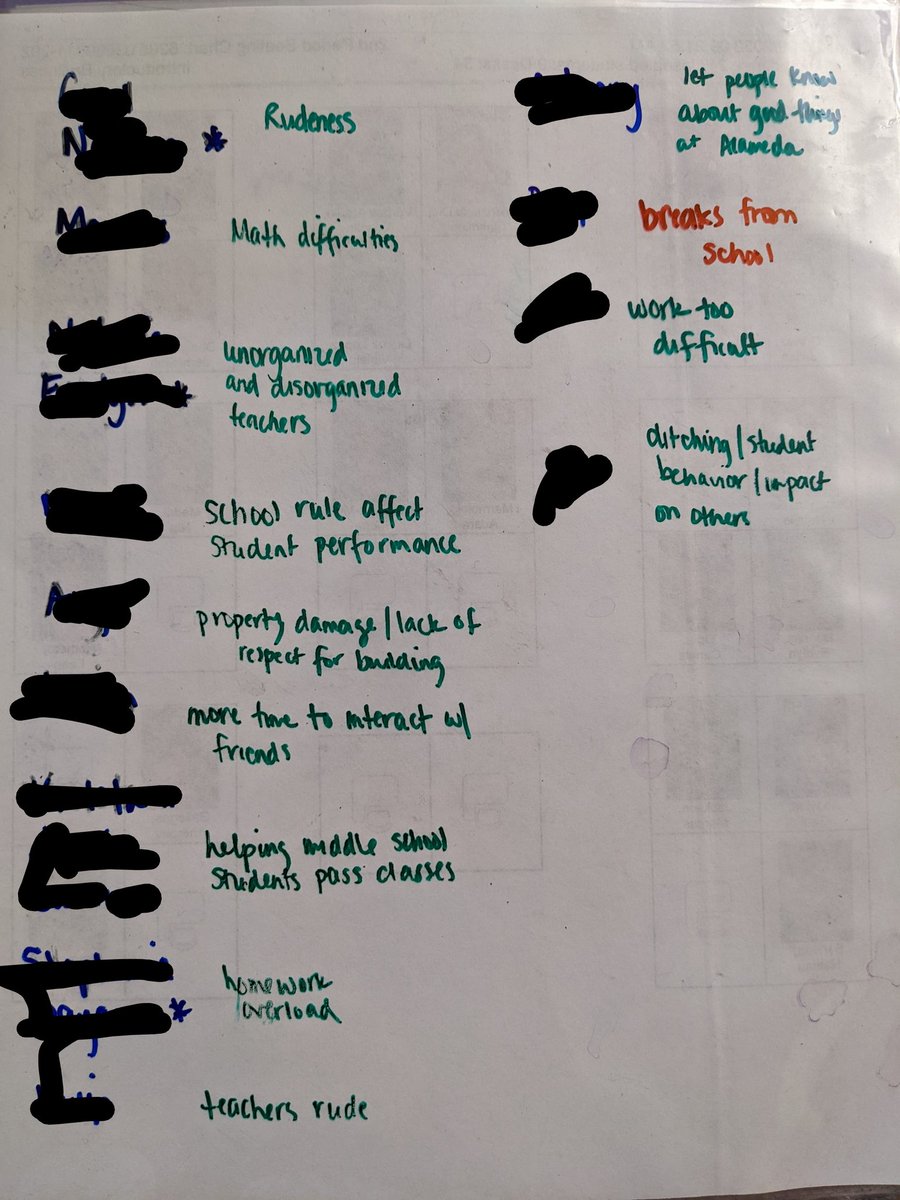 Rudeness
*
Math difficulties
unorganized
and disorganized
teachers
school rule affect
student performance
property damage/lack of
respect for building
more time to interact w/
friends
helping middle school
students pass classes
homework
overload
*
teachers rude
let people know
about good things
at Alameda
breaks from
school
work too
difficult
ditching/student
behavior/impact
on others